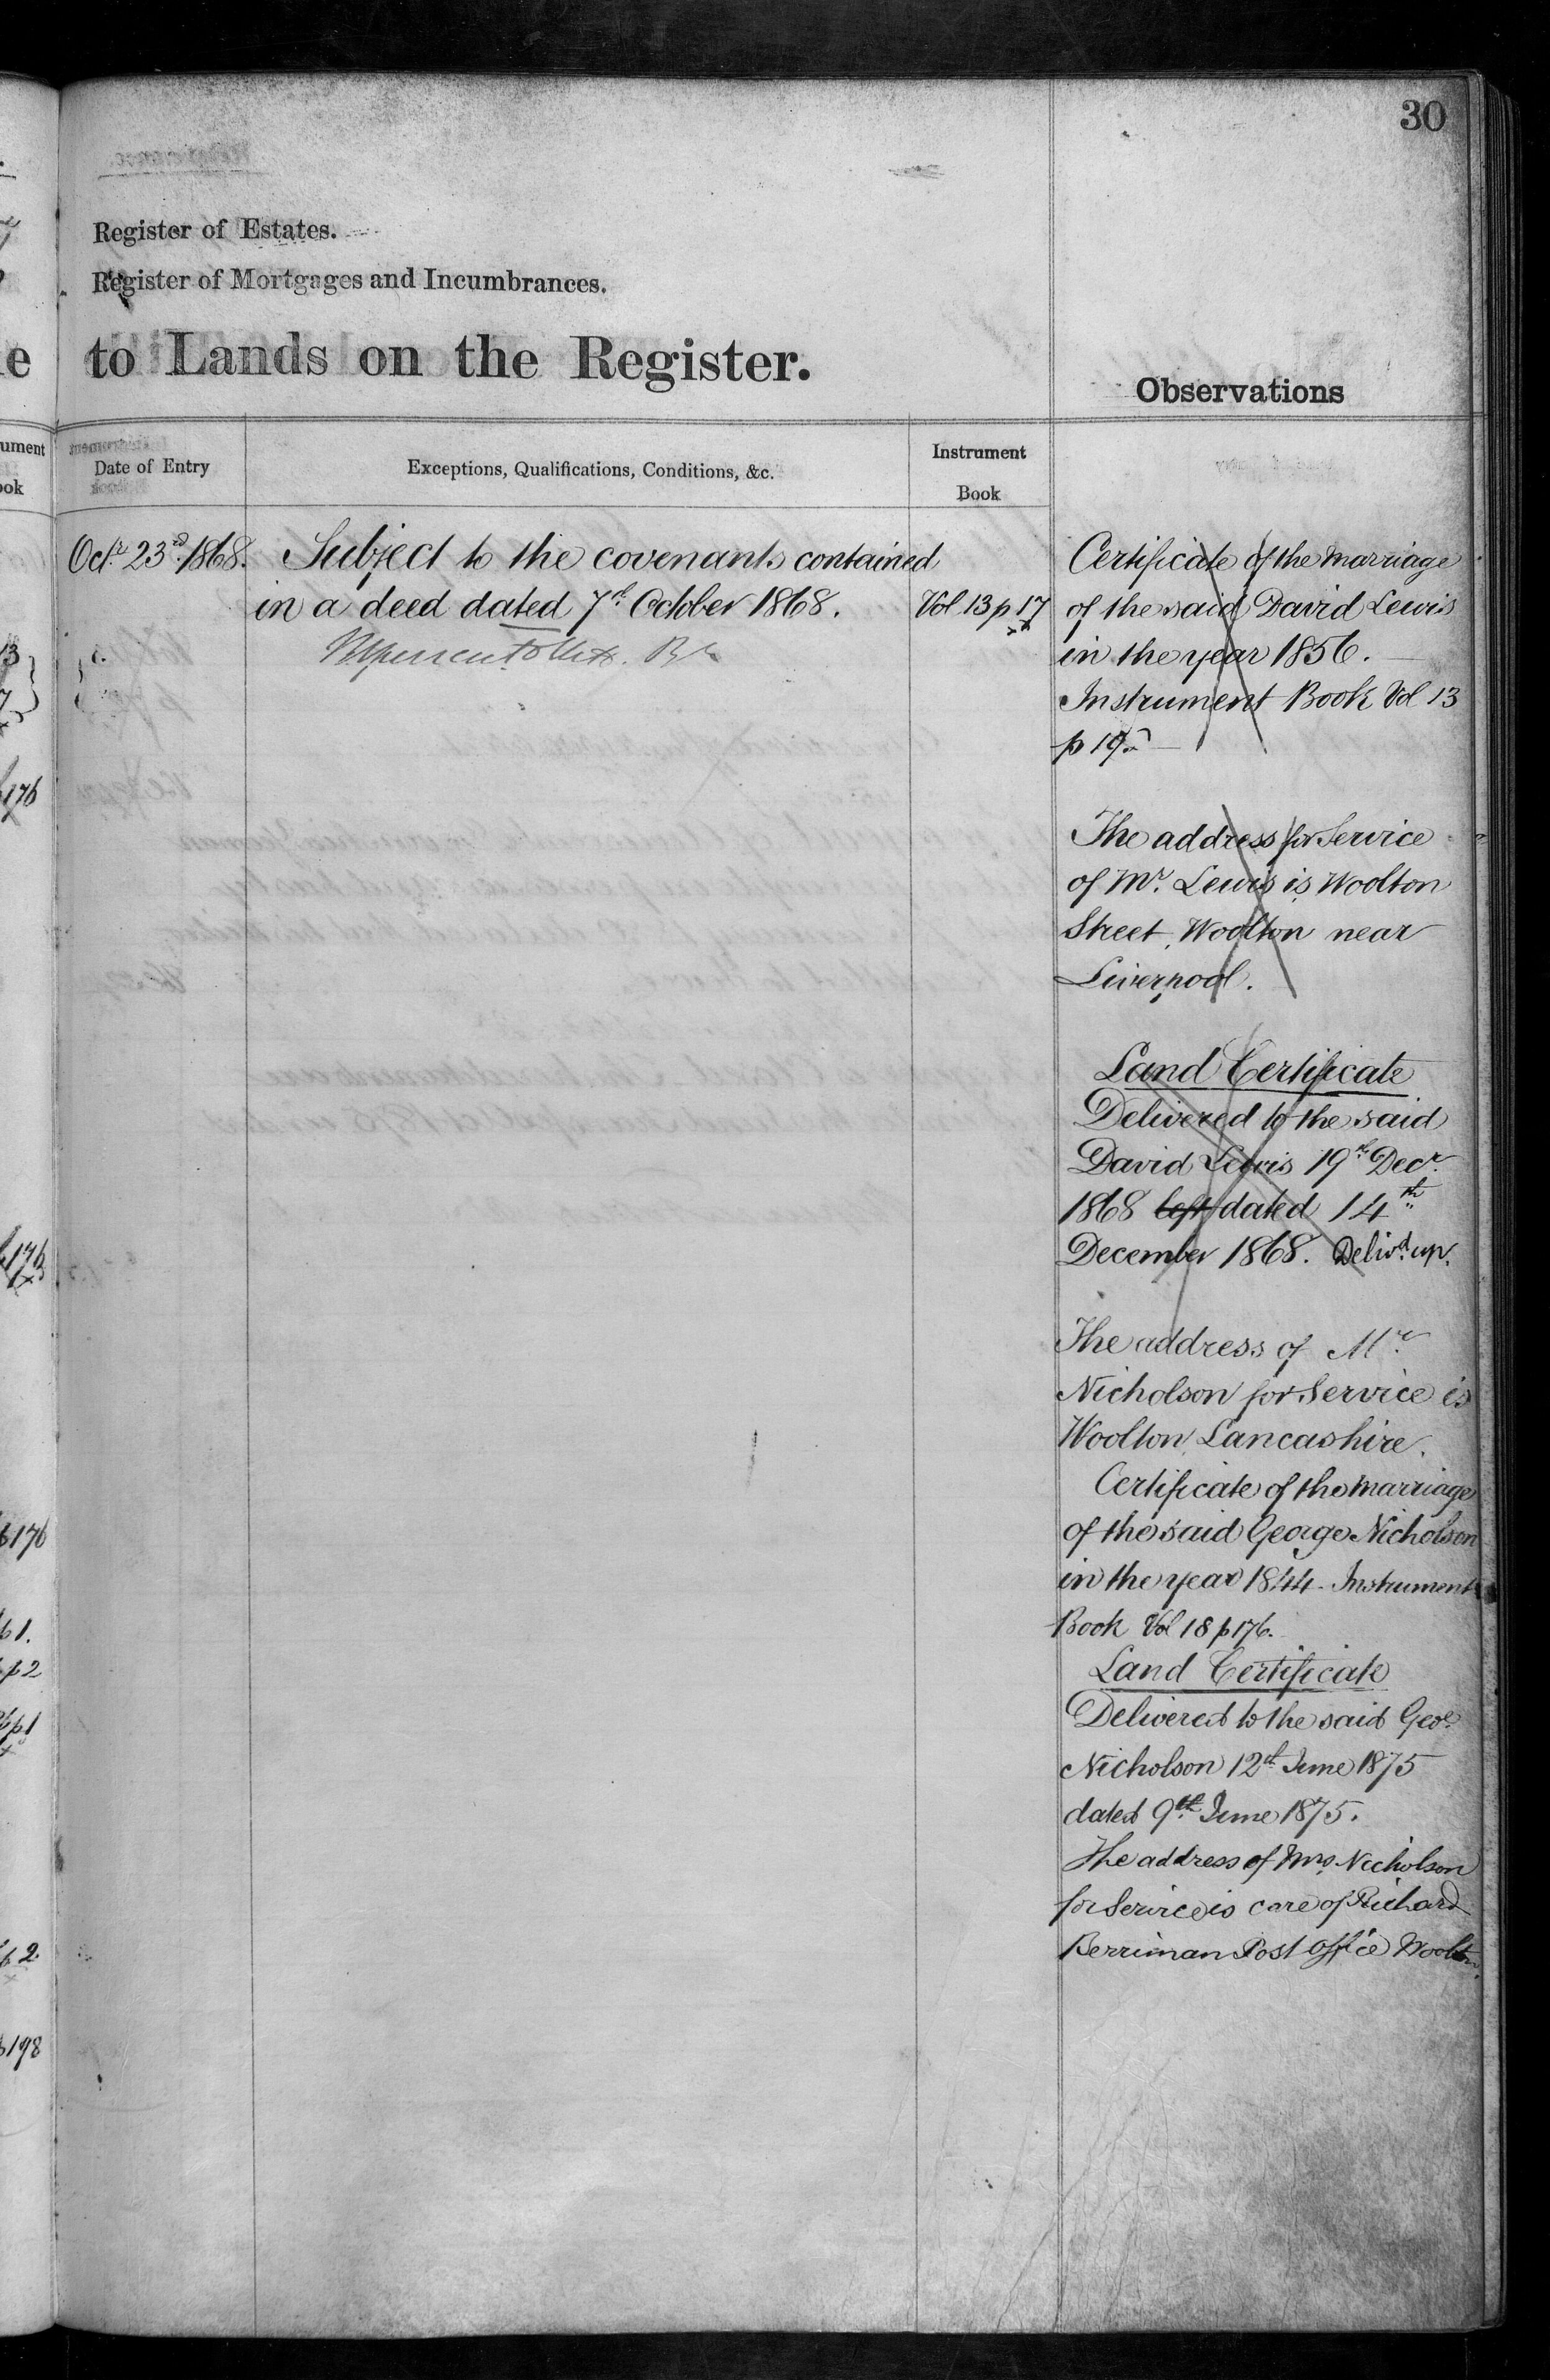 30
Register of Estates.
Register of Mortgages and Incumbrances.
to Lands on the Register.
Observations
Date of Entry
Exceptions, Qualifications, Conditions, &c.
Instrument
Book
Octr. 23rd. 1868.
Subject to the covenants contained
in a deed dated 7th October 1868.
Vol 13 p 17
Certificate of the marriage
of the said David Lewis
in the year 1856.
Instrument Book Vol 13
p 19
The address for Service
of Mr. Lewis is Woolton
Street, Woolton near
Liverpool.
Land Certificate
Delivered to the said
David Lewis 19th Decr.
1868 left dated 14th
December 1868. Delivd. up.
The address of Mr.
Nicholson for Service is
Woolton Lancashire.
Certificate of the marriage
of the said George Nicholson
in the year 1844. Instrument
Book Vol 18 p 176.
Land Certificate
Delivered to the said Geoe.
Nicholson 12th June 1875
dated 9th June 1875.
The address of Mrs. Nicholson
for Service is care of Richard
Berriman Post Office Woolton.
ument
ook
13
7
176
176
176
p 2
p 1
198